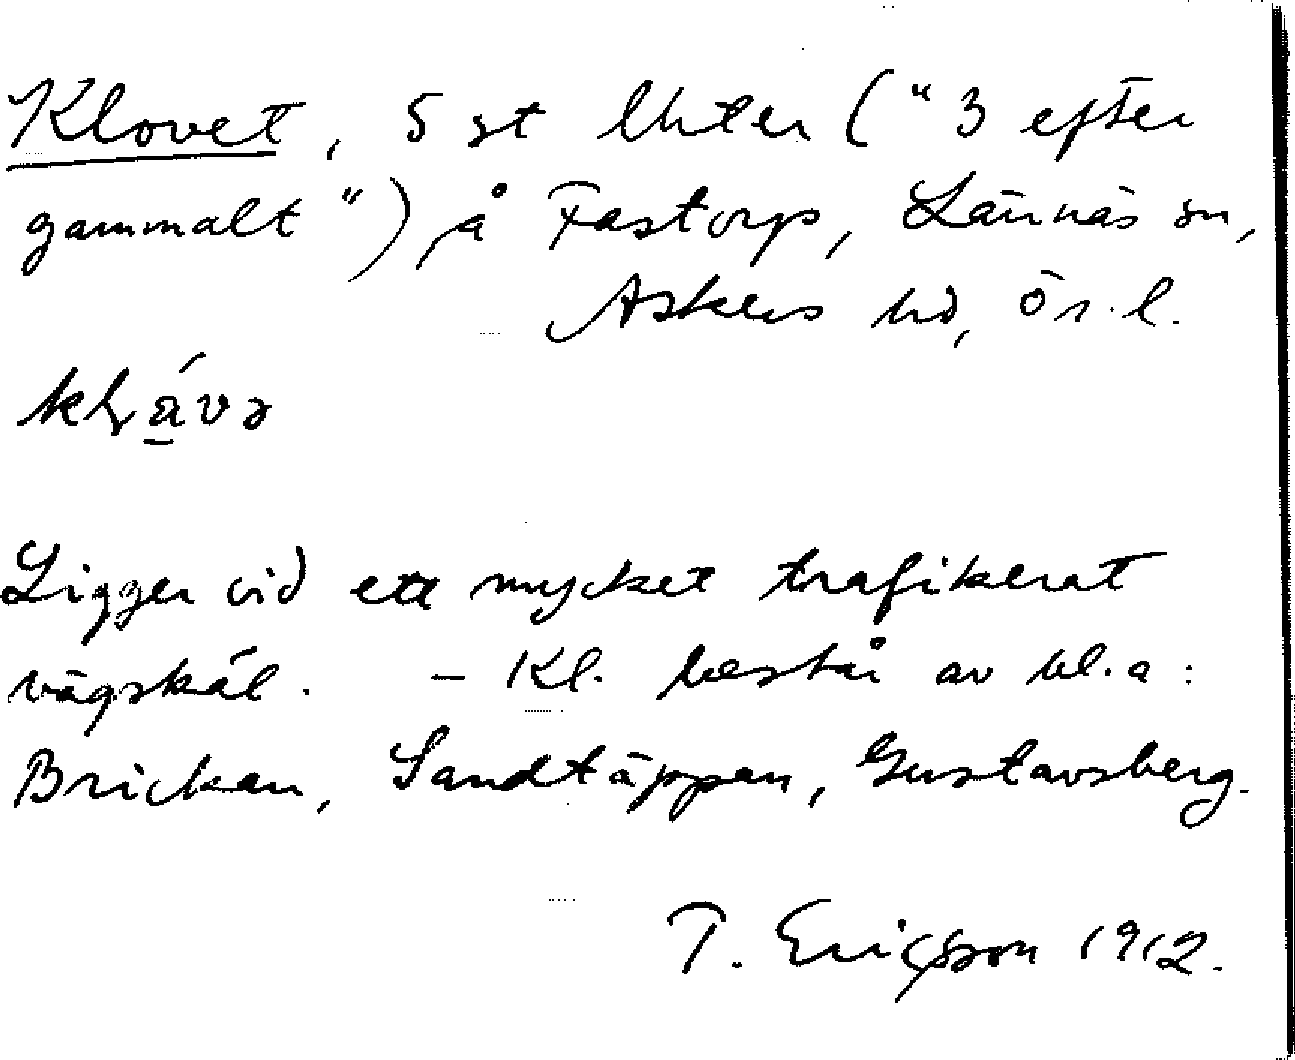 Klovet, 5 st lhter ("3 efter
gammalt"), å Fastorp, Lännäs sn,
Askers hd, Ör. l.
Ligger vid ett mycket trafikerat
vägskäl. – Kl. består av bl.a:
Brickan, Sandtäppan, Gustavsberg.
T. Ericsson 1912.